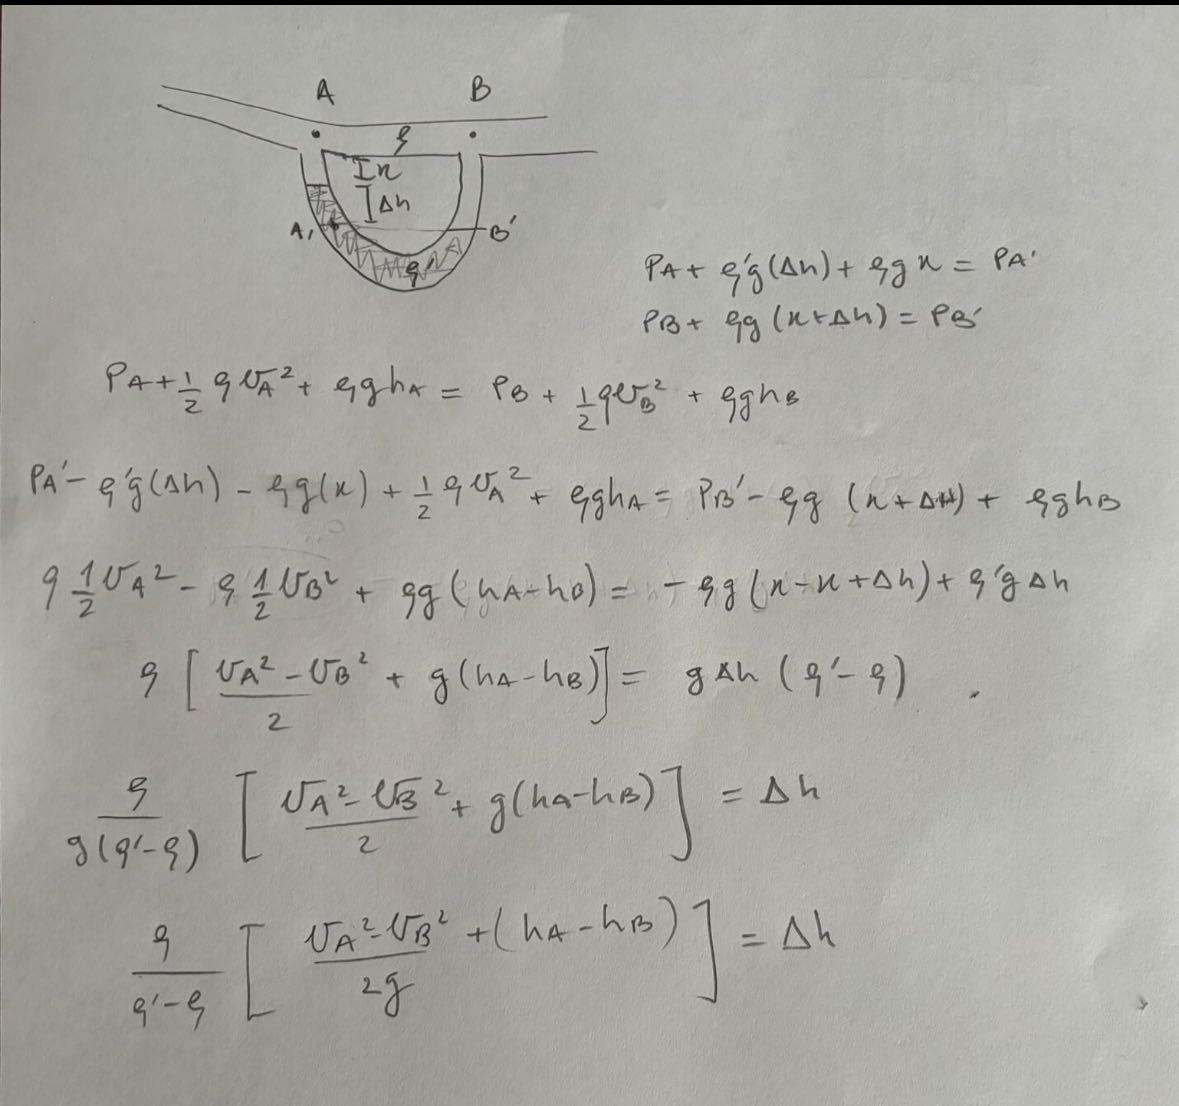 A B
ρ
x
Δh
A, B'
ρ'
PA + ρ'g(Δh) + ρgx = PA'
PB + ρg(x+Δh) = PB'
PA + 1/2 ρvA² + ρghA = PB + 1/2 ρvB² + ρghB
PA' - ρ'g(Δh) - ρg(x) + 1/2 ρvA² + ρghA = PB' - ρg (x+ΔH) + ρghB
ρ 1/2 vA² - ρ 1/2 vB² + ρg(hA-hB) = - ρg(x-x+Δh) + ρ'gΔh
ρ [ (vA² - vB²)/2 + g(hA-hB) ] = gΔh (ρ'-ρ) .
ρ/(g(ρ'-ρ)) [ (vA² - vB²)/2 + g(hA-hB) ] = Δh
ρ/(ρ'-ρ) [ (vA² - vB²)/2g + (hA-hB) ] = Δh